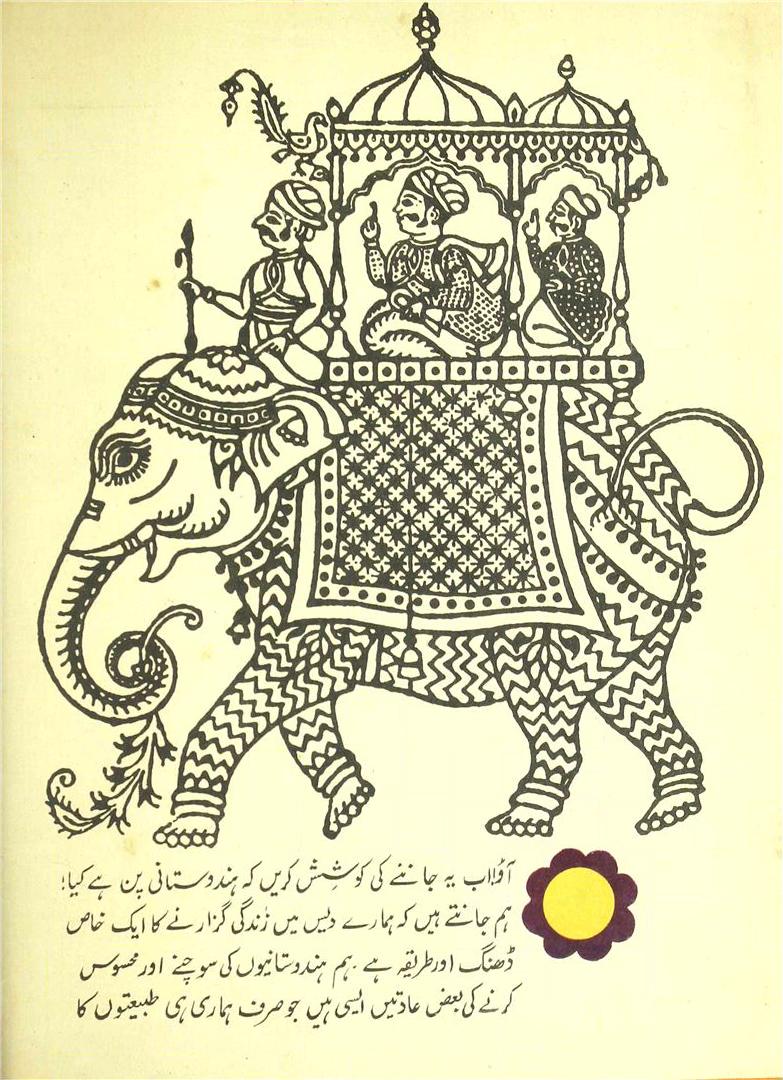 آؤ! اب یہ جاننے کی کوشش کریں کہ ہندوستانی پن ہے کیا!
ہم جانتے ہیں کہ ہمارے دیس میں زندگی گزارنے کا ایک خاص
ڈھنگ اور طریقہ ہے۔ ہم ہندوستانیوں کی سوچنے اور محسوس
کرنے کی بعض عادتیں ایسی ہیں جو صرف ہماری ہی طبیعتوں کا